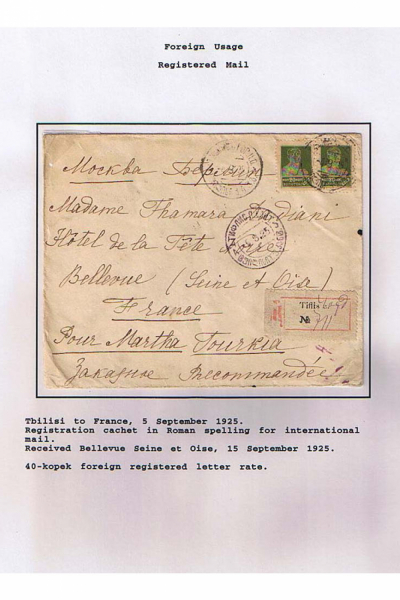 Foreign Usage
Registered Mail
Москва Берлин
Madame Thamara Dadiani
Hôtel de la Tête
Bellevue (Seine et Oise)
France
Tiflis
№ 711
Pour Martha Tourkia
Заказное Recommandée
Tbilisi to France, 5 September 1925.
Registration cachet in Roman spelling for international
mail.
Received Bellevue Seine et Oise, 15 September 1925.
40-kopek foreign registered letter rate.